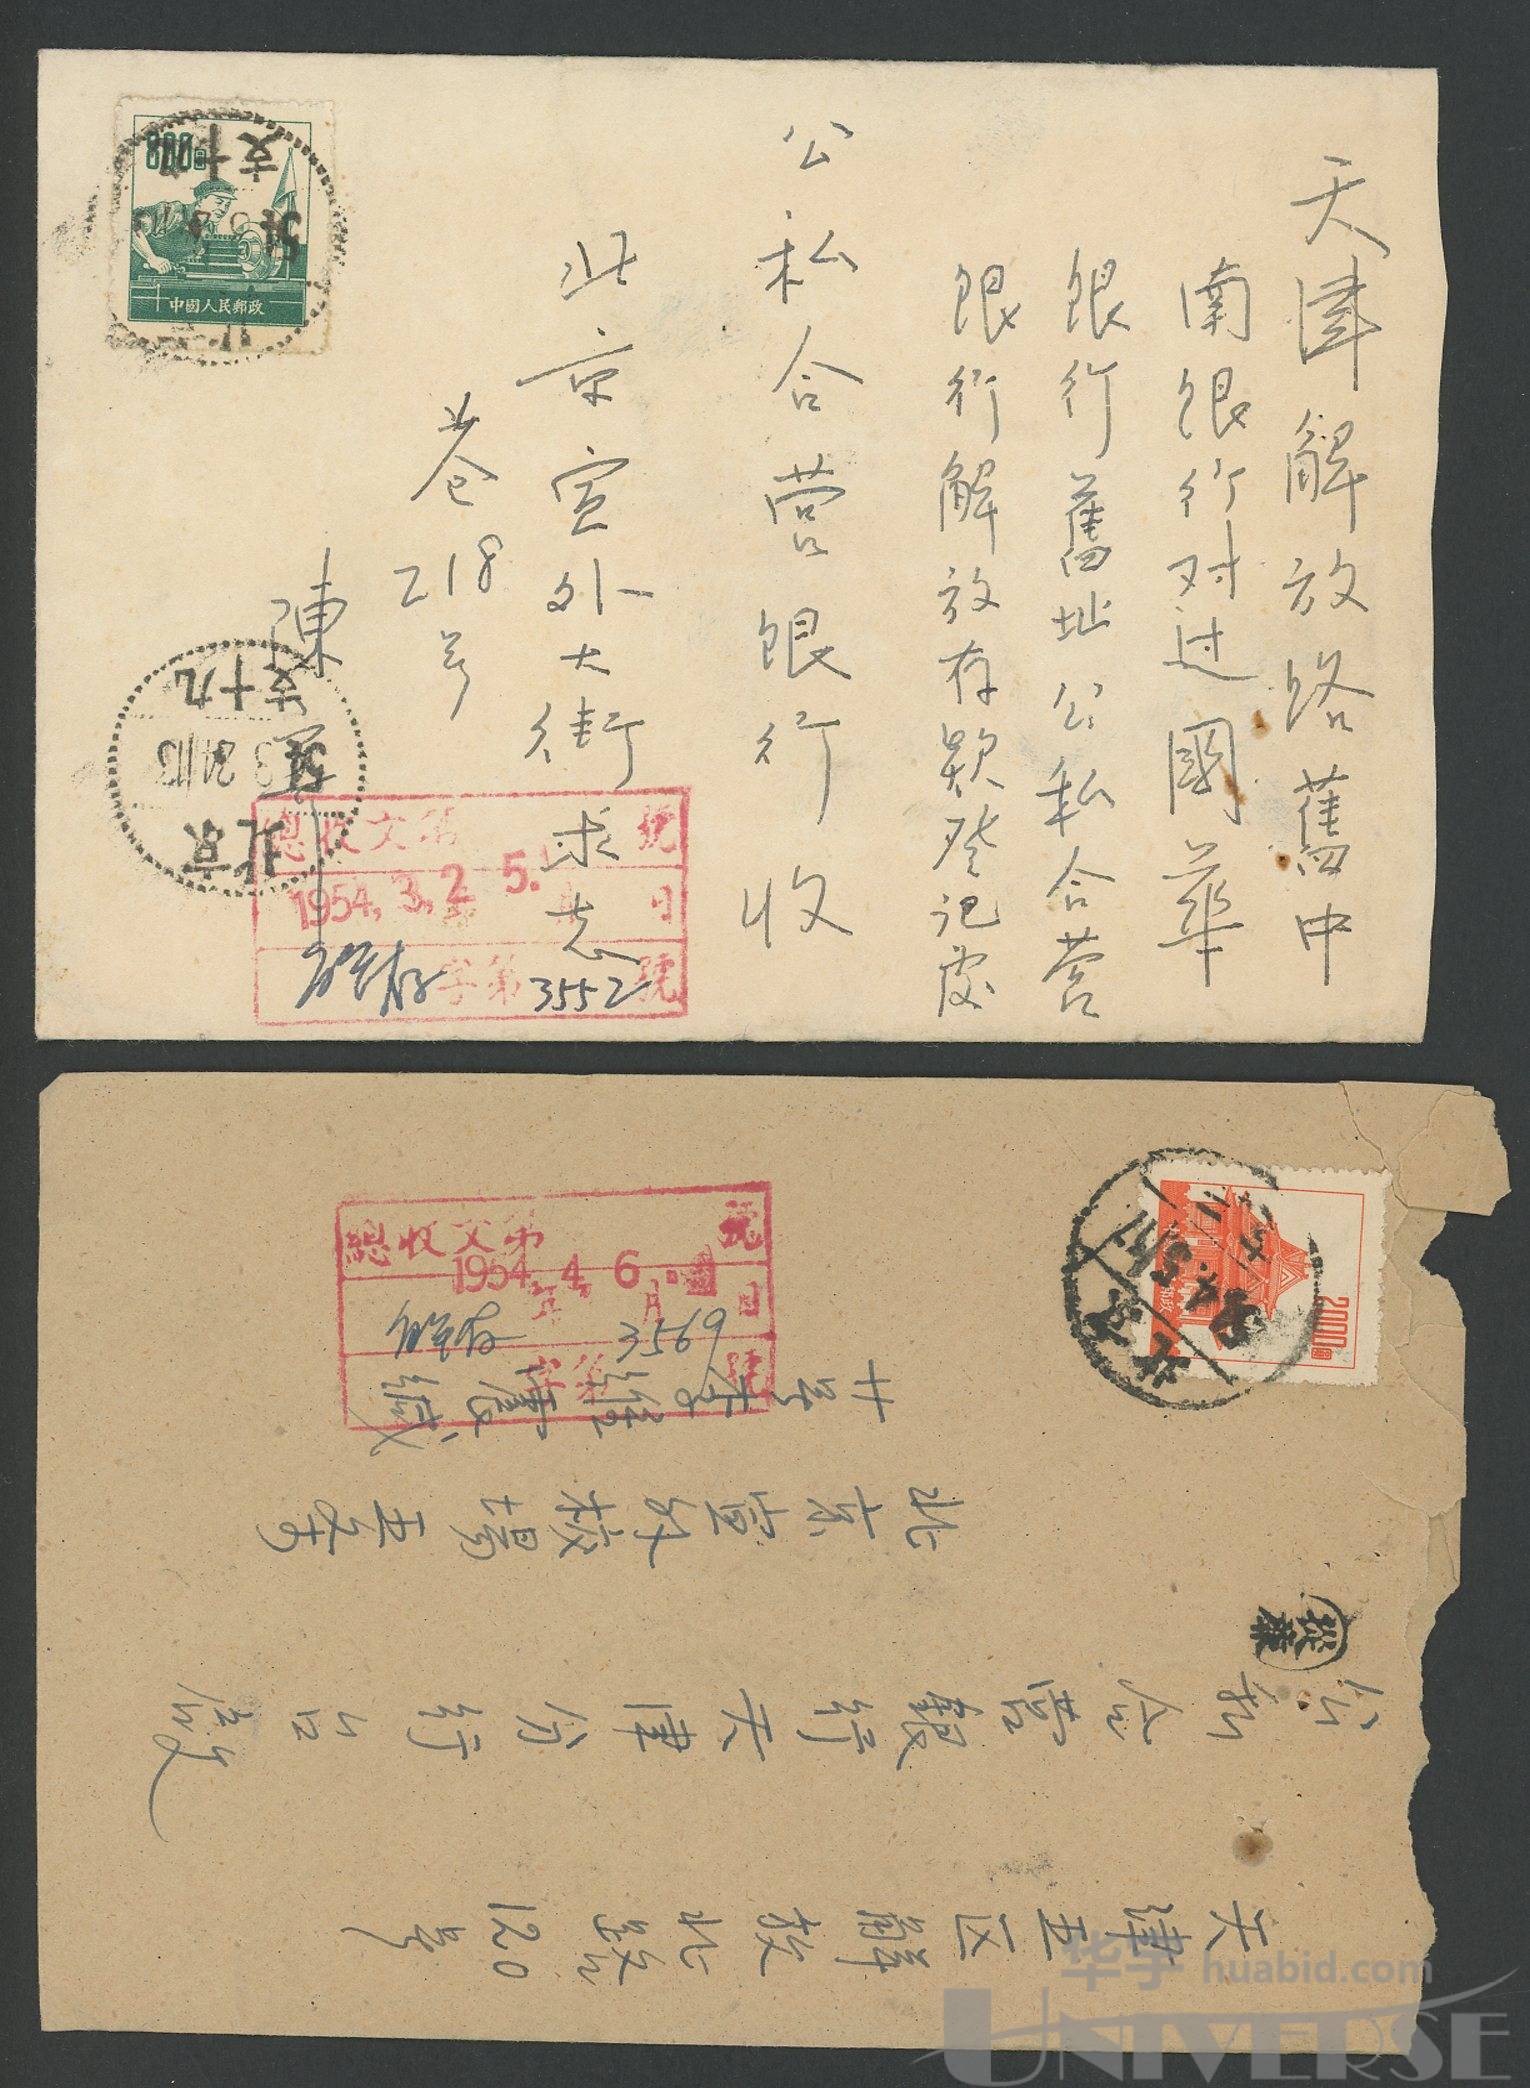 天津解放路舊中
南銀行对过國華
銀行舊址公私合营
銀行解放存款登记處
公私合营銀行收
北京宣外大街求志
巷218号
陳
800圓
中國人民郵政
支十九
54
北京
支十九
54 3 24 13
總收文第 號
1954.3.25. 日
字第3552號
2000圓
北京
54.4.5
總收文第 號
1954.4.6. 年 月 日
3569
字第 號
北京宣外校場五条
公私合营銀行天津分行公啟
天津五区解放北路120号
华宇 huabid.com
UNIVERSE